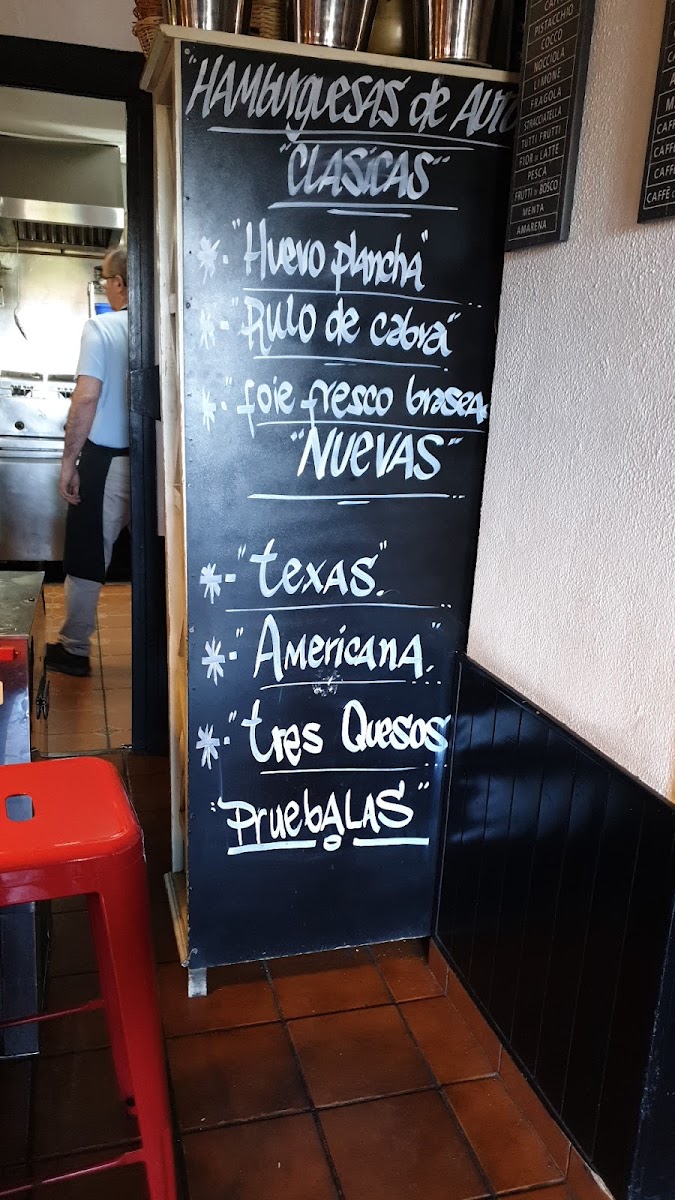 "HAMBURGUESAS de AUTOR
"CLASICAS"
*-"Huevo plancha"
*-"Rulo de cabra"
*-"foie fresco brasea.
"NUEVAS"
*-"texas".
*-"Americana."
*-"tres Quesos
"PruebALAS"
PISTACCHIO
COCCO
NOCCIOLA
LIMONE
FRAGOLA
STRACCIATELLA
TUTTI FRUTTI
FIOR DI LATTE
PESCA
FRUTTI DI BOSCO
MENTA
AMARENA